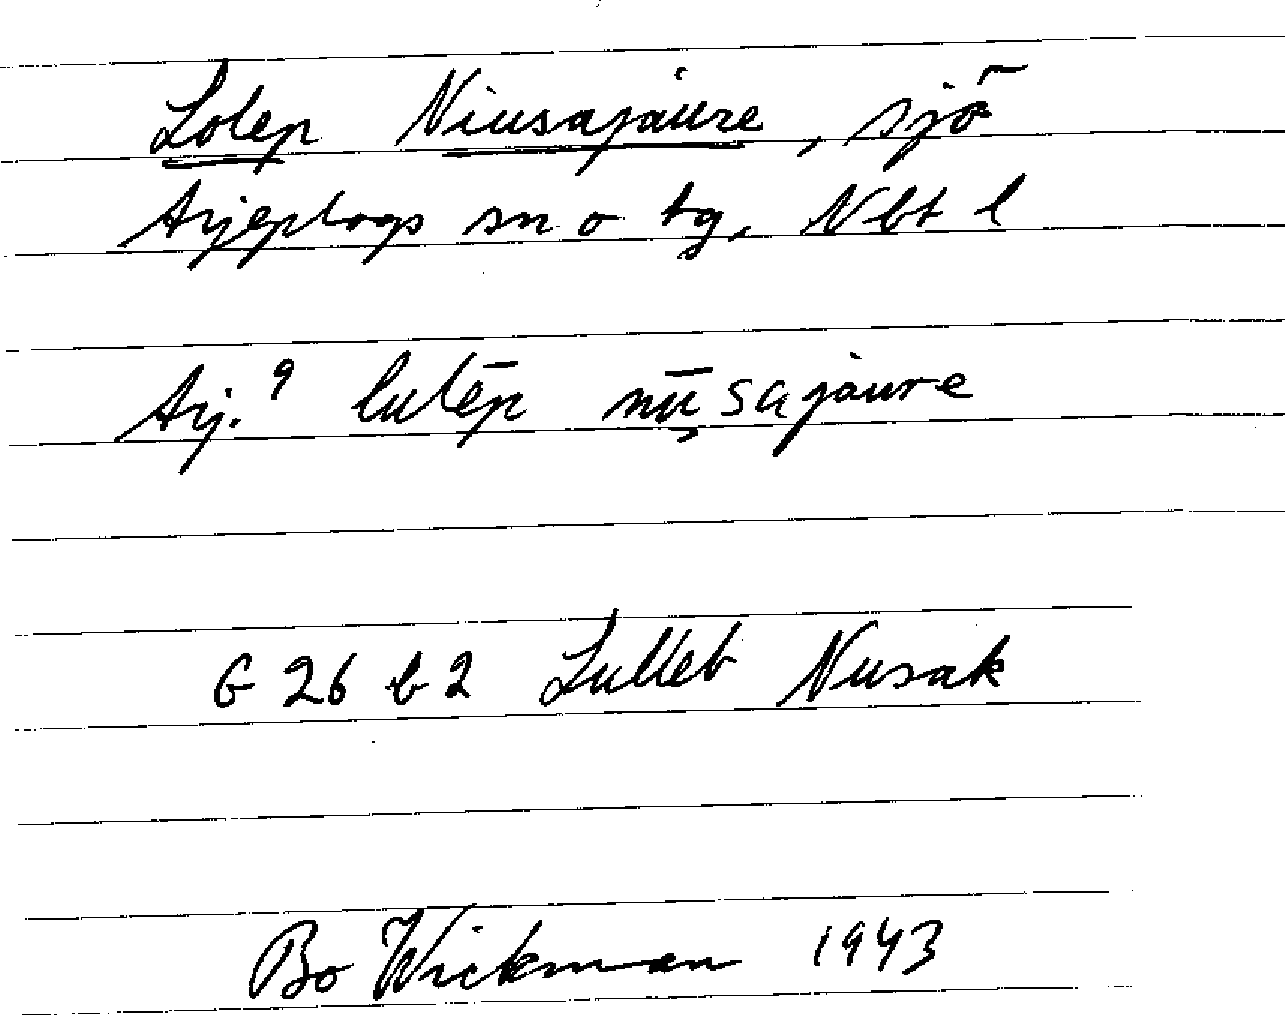 Lolep Niusajaure, sjö
Arjeplogs sn o tg, Nbt l
Arj. 9 lulēp nūsajaure
G 26 b 2 Lulleb Nusak
Bo Wickman 1943